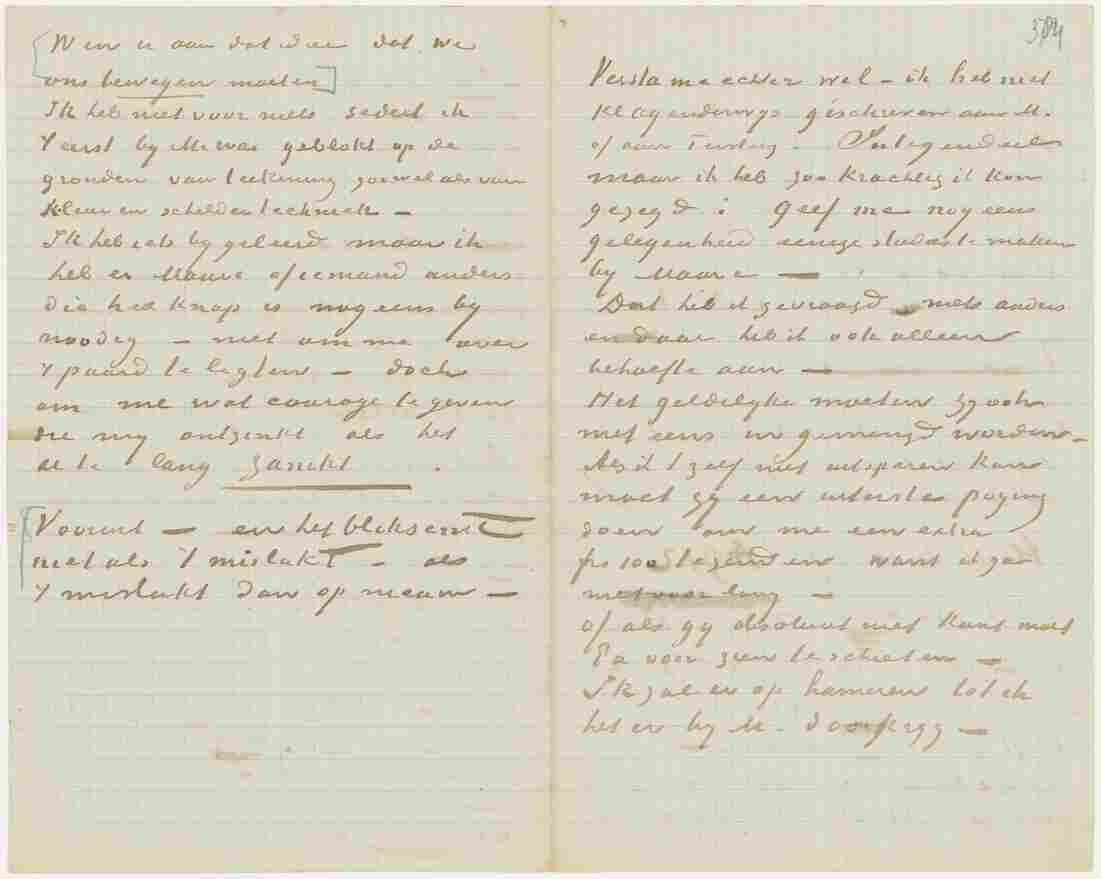 Wen u aan dat idee dat we
ons bewegen moeten
Ik heb niet voor niets sedert ik
't eerst by M. was geblokt op de
gronden van teekening zoowel als van
kleur en schildertechniek –
Ik heb iets bygeleerd maar ik
heb er Mauve of iemand anders
die heel knap is nog eens by
noodig – niet om me over
't paard te ligten – doch
om me wat courage te geven
die my ontzinkt als het
al te lang zanikt .
Vooruit – en het bliksemt
niet als 't mislukt – als
't mislukt dan op nieuw –
384
Versta me echter wel – ik heb niet
klagenderwys geschreven aan M.
of aan Tersteeg. Integendeel
maar ik heb zoo krachtig ik kon
gezegd : Geef me nog eens
gelegenheid eenige studies te maken
by Mauve –
Dat heb ik gevraagd niets anders
en daar heb ik ook alleen
behoefte aan –
Het geldelyke moeten zy ook
niet eens in gemengd worden –
Als ik 't zelf niet uitsparen kan
moet gy een uiterste poging
doen om me een extra
frs 100 te zenden want ik ga
niet voor lang –
of als gy absoluut niet kunt moet
Pa voor zien te schieten –
Ik zal er op hameren tot ik
het er by M. doorkryg –